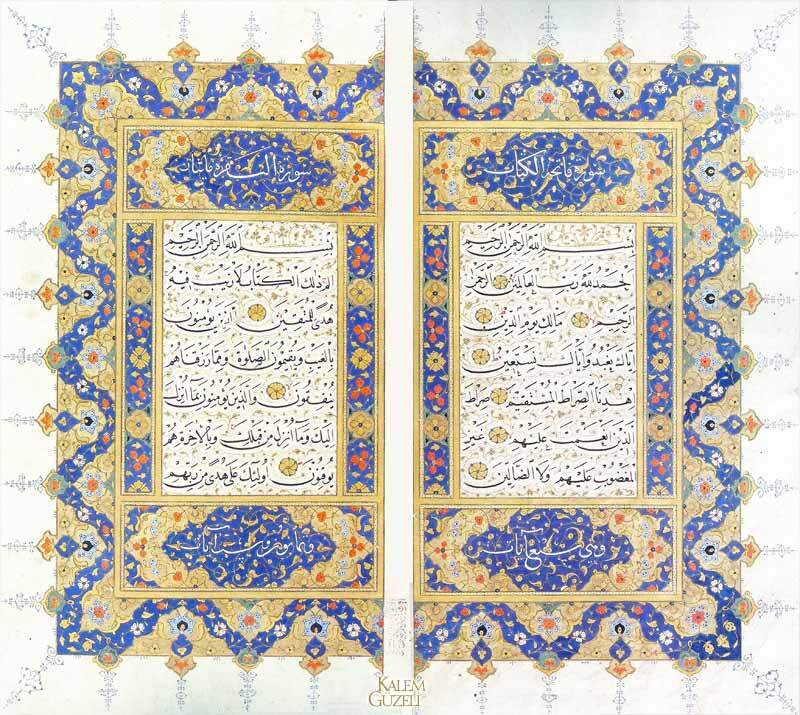 سورة فاتحة الكتاب
بسم الله الرحمن الرحيم
الحمد لله رب العالمين الرحمن
الرحيم مالك يوم الدين
اياك نعبد واياك نستعين
اهدنا الصراط المستقيم صراط
الذين انعمت عليهم غير
المغضوب عليهم ولا الضالين
وهي سبع آيات
سورة البقرة مايتان
بسم الله الرحمن الرحيم
الم ذلك الكتاب لا ريب فيه
هدى للمتقين الذين يؤمنون
بالغيب ويقيمون الصلوة ومما رزقناهم
ينفقون والذين يؤمنون بما انزل
اليك وما انزل من قبلك وبالاخرة هم
يوقنون اولئك على هدى من ربهم
وثمانون وست آيات
KALEM
GÜZELİ